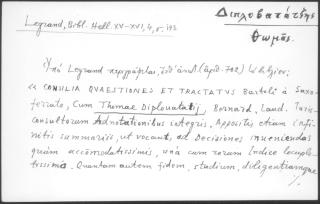 Legrand, Bibl. Hell. XV-XVI, 4, σ. 193
Διπλοβατάτζης
Θωμᾶς.
Ὑπὸ Legrand περιγράφεται, ὑπ' ἀριθ. (ἀριθ. 702) τὸ βιβλίον:
« CONSILIA QVAESTIONES ET TRACTATVS Bartoli à Saxo-
ferrato, Cum Thomae Diplovatatij, Bernard. Laud. Iuris-
consultorum Adnotationibus integris. Appositis etiam infi-
nitis summarijs, ut vocant, ad Decisiones inueniendas
quàm accomodatissimis, unà cum rerum Indice locuple-
tissimo. Quantam autem fidem, studium, diligentiamque